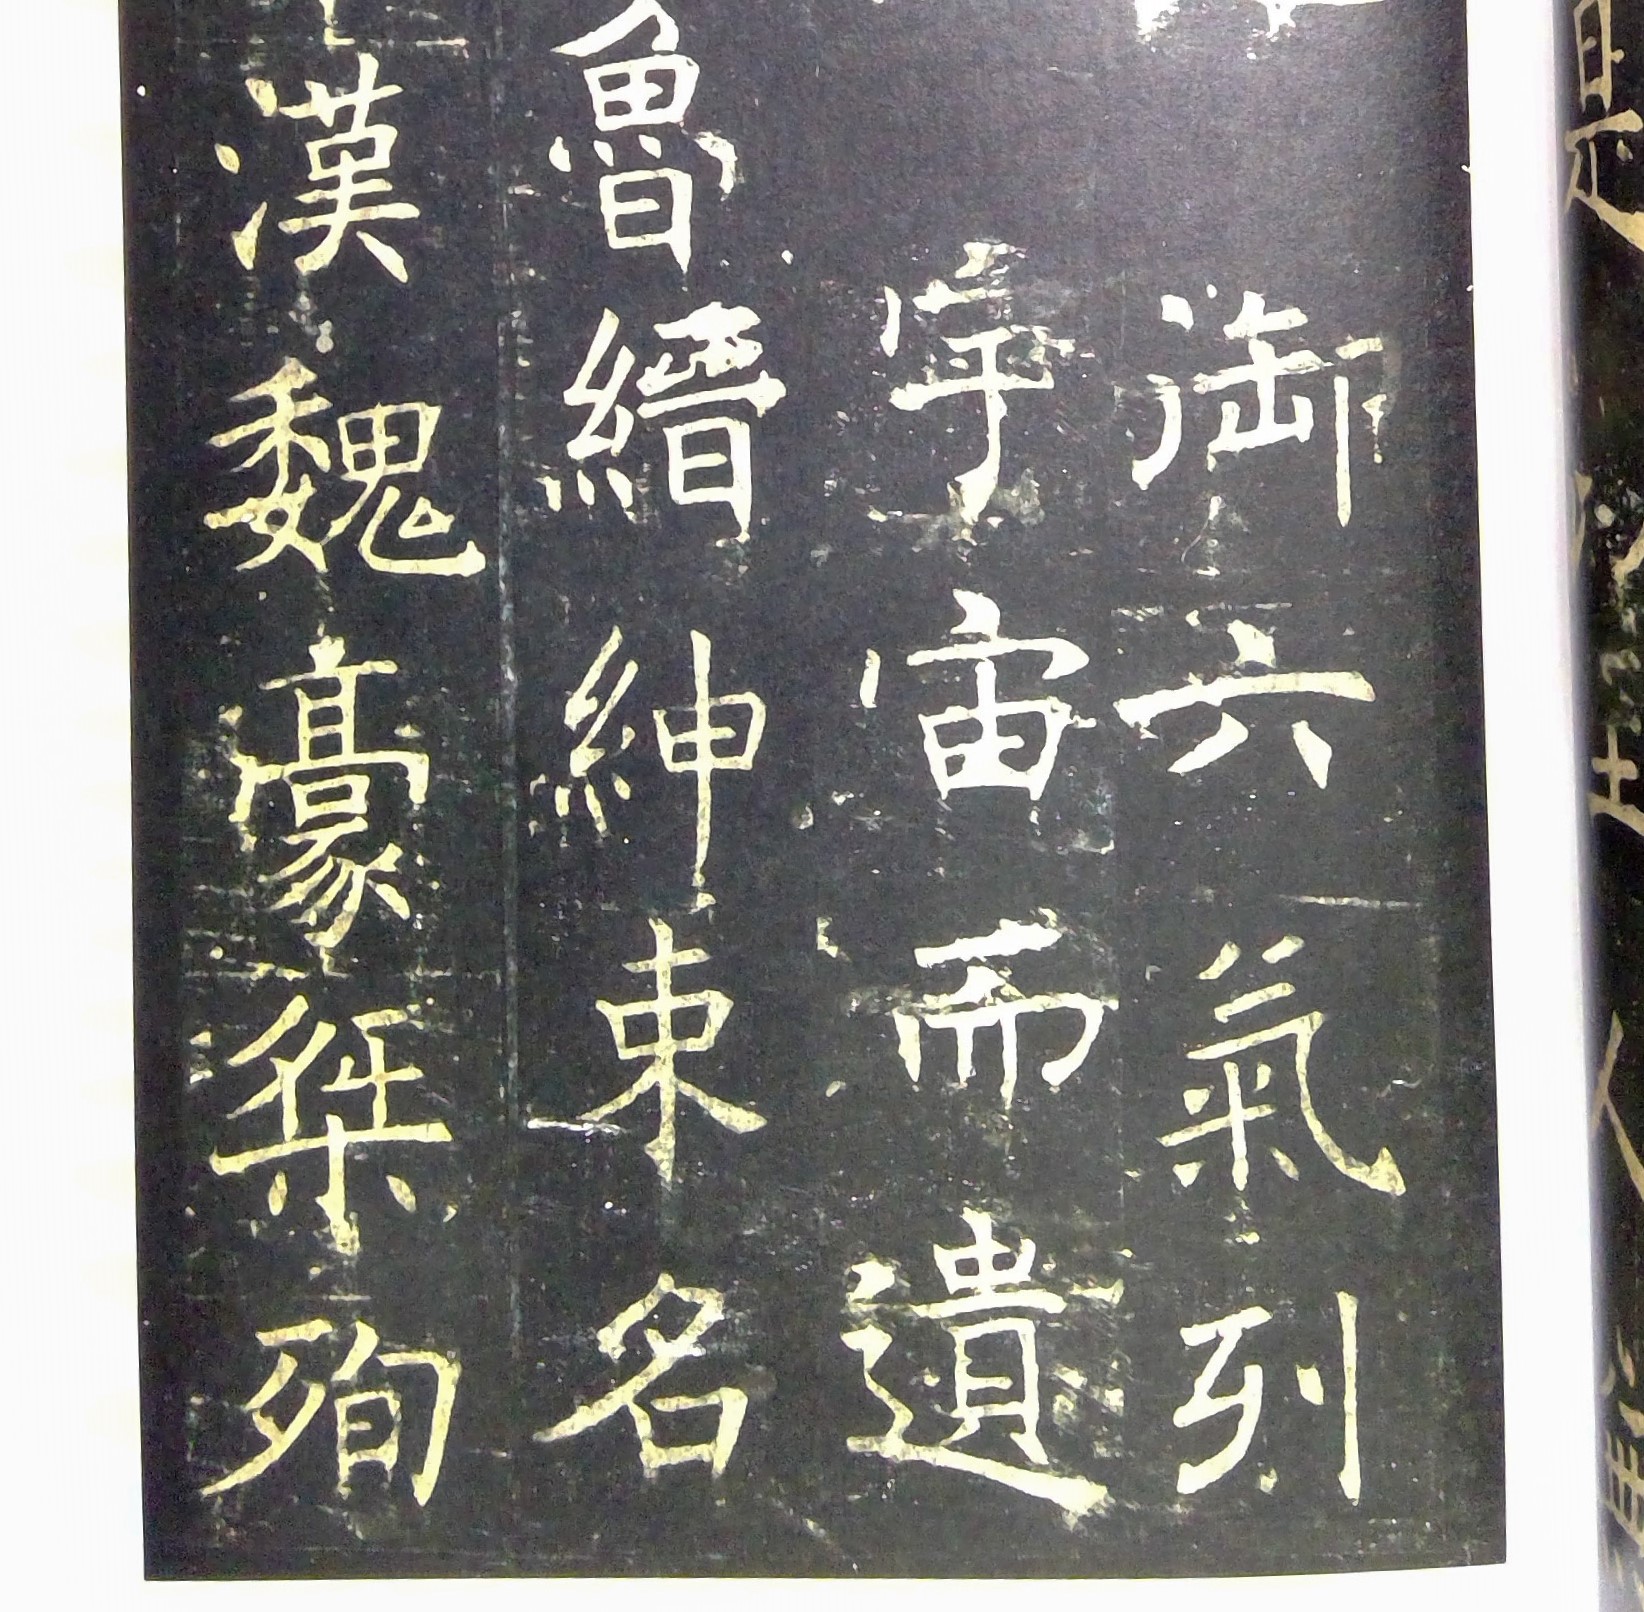 御六氣列
宇宙而遺
魯縉紳束名
漢魏豪桀殉